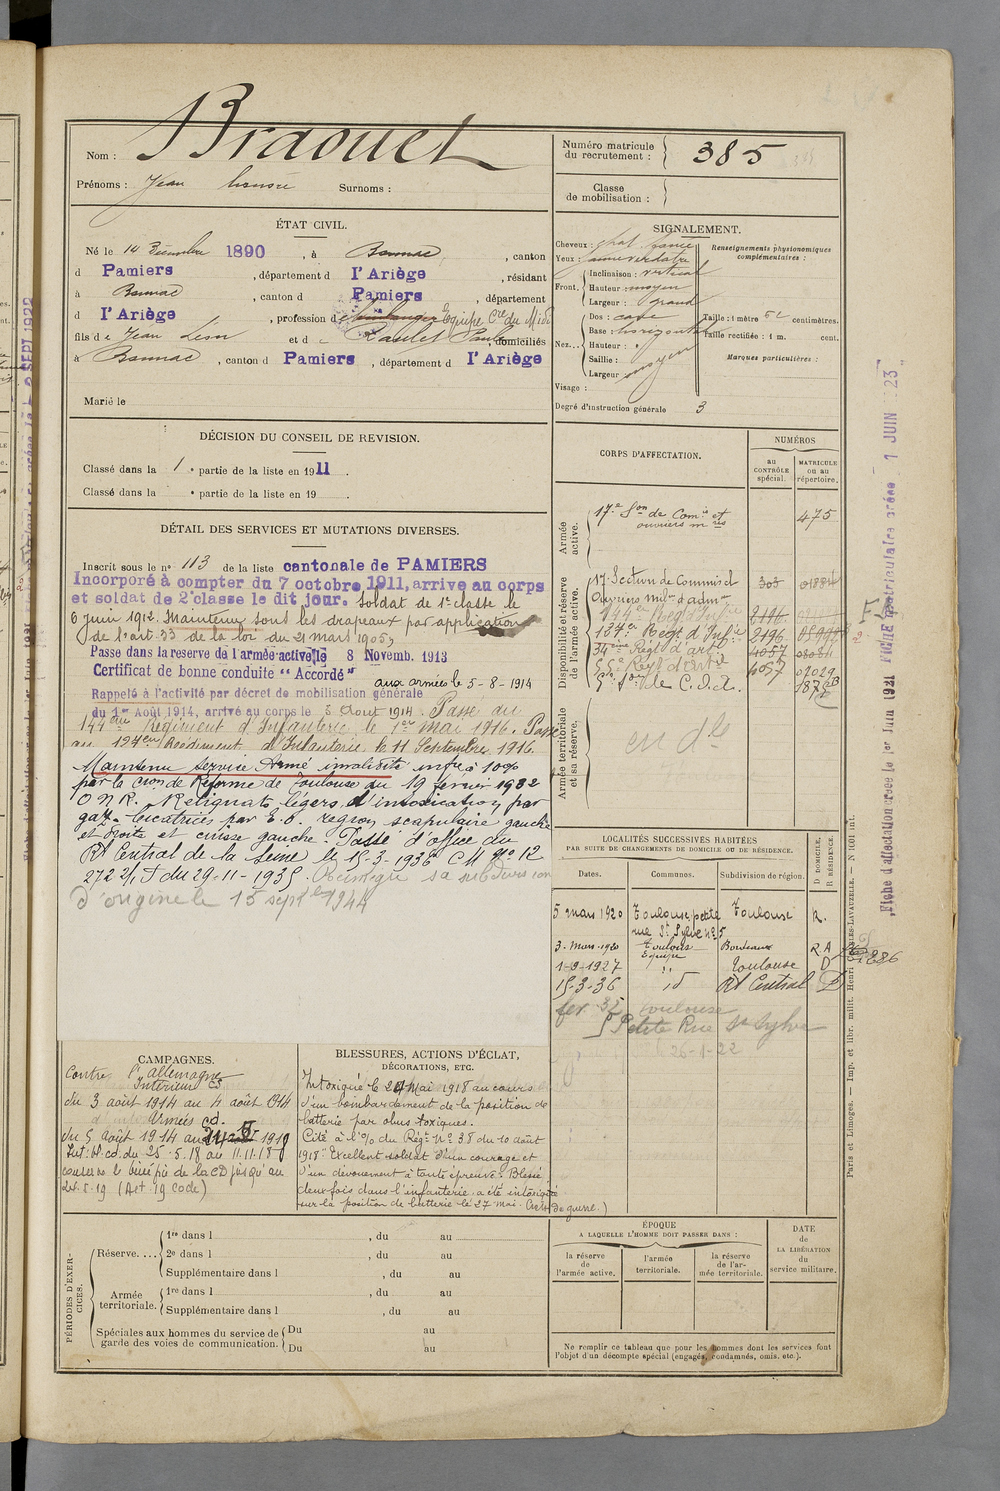 Nom : Braouet
Prénoms : Jean Surnoms :
Numéro matricule du recrutement : 385
Classe de mobilisation :
ÉTAT CIVIL.
Né le 14 Décembre 1890, à Bonnac, canton
d Pamiers, département d l'Ariège, résidant
à Bonnac, canton d Pamiers, département
d l'Ariège, profession d boulanger Equipe Cie du Midi
fils de Jean Léon et d, domiciliés
à Bonnac, canton d Pamiers, département d l'Ariège
Marié le
SIGNALEMENT.
Cheveux : chat. foncé
Yeux : jaune verdâtre
Front. Inclinaison : vertical
Hauteur : moyen
Largeur : grand
Nez... Dos : cave
Base : horizontal
Hauteur :
Saillie : moyen
Largeur
Visage :
Degré d'instruction générale 3
Renseignements physionomiques complémentaires :
Taille : 1 mètre centimètres.
Taille rectifiée : 1 m. cent.
Marques particulières :
DÉCISION DU CONSEIL DE REVISION.
Classé dans la 1e partie de la liste en 1911.
Classé dans la e partie de la liste en 19
DÉTAIL DES SERVICES ET MUTATIONS DIVERSES.
Inscrit sous le no 113 de la liste cantonale de PAMIERS
Incorporé à compter du 7 octobre 1911, arrive au corps
et soldat de 2e classe le dit jour. Soldat de 1e classe le
6 juin 1912. Maintenu sous les drapeaux par application
de l'art. 33 de la loi du 21 mars 1905,
Passe dans la réserve de l'armée active le 8 Novemb. 1913
Certificat de bonne conduite "Accordé"
aux armées le 5-8-1914
Rappelé à l'activité par décret de mobilisation générale
du 1er Août 1914, arrivé au corps le 3 Août 1914. Passé au
144ème Régiment d'Infanterie le 1er mai 1916. Passé
au 134ème Régiment d'Infanterie le 11 Septembre 1916.
Maintenu Service Armé invalidité infre à 10%
par la Cion de Réforme de Toulouse du 19 février 1932
O N R. Reliquats légers d'intoxication par
gaz. Cicatrices par E.O. région scapulaire gauche
et droite et cuisse gauche. Passé d'office au
Rt Central de la Seine le 15-3-1936 CM No 12
272 2/1 T du 29-11-1935. Réintègre sa subdivision
d'origine le 15 septbre 1944
CORPS D'AFFECTATION.
NUMÉROS
au CONTRÔLE spécial.
MATRICULE ou au répertoire.
Armée active.
17e Son de Comis et ouvriers mres 475
Disponibilité et réserve de l'armée active.
17e Section de Commis et Ouvriers milres d'admon
144e Régt d'Infie 2196
134e Régt d'Infie 2196
34ème Régt d'artie 4057
Régt d'artie 4057
Armée territoriale et sa réserve.
LOCALITÉS SUCCESSIVES HABITÉES
PAR SUITE DE CHANGEMENTS DE DOMICILE OU DE RÉSIDENCE.
Dates. Communes. Subdivision de région. D DOMICILE, R RÉSIDENCE.
5 mars 1920 Toulouse, petite rue St Sylve no 5 Toulouse R.
3-Mars-1920 Toulouse Equipe Bordeaux R A
1-9-1927 " Toulouse D
15-3-36 id Rt Central D
Toulouse
5 Petite Rue St Sylve
26-1-22
CAMPAGNES.
Contre l'allemagne
Intérieur CS
du 3 août 1914 au 4 août 1914
Armées cd.
du 5 août 1914 au 1919
Int: bl. cd. du 25-5-18 au 11.11.18
conserve le bénéfice de la CD jusqu'au
24.5.19 (Art. 19 code)
BLESSURES, ACTIONS D'ÉCLAT, DÉCORATIONS, ETC.
Intoxiqué le 24 Mai 1918 au cours
d'un bombardement de la position de
batterie par obus toxiques.
Cité à l'O/ du Régt No 38 du 10 août
1918 "Excellent soldat d'un courage et
d'un dévouement à toute épreuve. Blessé
deux fois dans l'infanterie, a été intoxiqué
sur la position de batterie le 27 mai. Croix de guerre.)
PÉRIODES D'EXERCICES.
Réserve.... 1re dans l , du au
2e dans l , du au
Supplémentaire dans l , du au
Armée territoriale. 1re dans l , du au
Supplémentaire dans l , du au
Spéciales aux hommes du service de garde des voies de communication. Du au
Du au
ÉPOQUE
A LAQUELLE L'HOMME DOIT PASSER DANS :
la réserve de l'armée active.
l'armée territoriale.
la réserve de l'armée territoriale.
DATE de LA LIBÉRATION du service militaire.
Ne remplir ce tableau que pour les hommes dont les services font
l'objet d'un décompte spécial (engagés, condamnés, omis, etc.).
Fiche d'affectation créée le 1er Juin 1921 FICHE matriculaire créée 1 JUIN 1923
Paris et Limoges. — Imp. et libr. milit. Henri CHARLES-LAVAUZELLE.